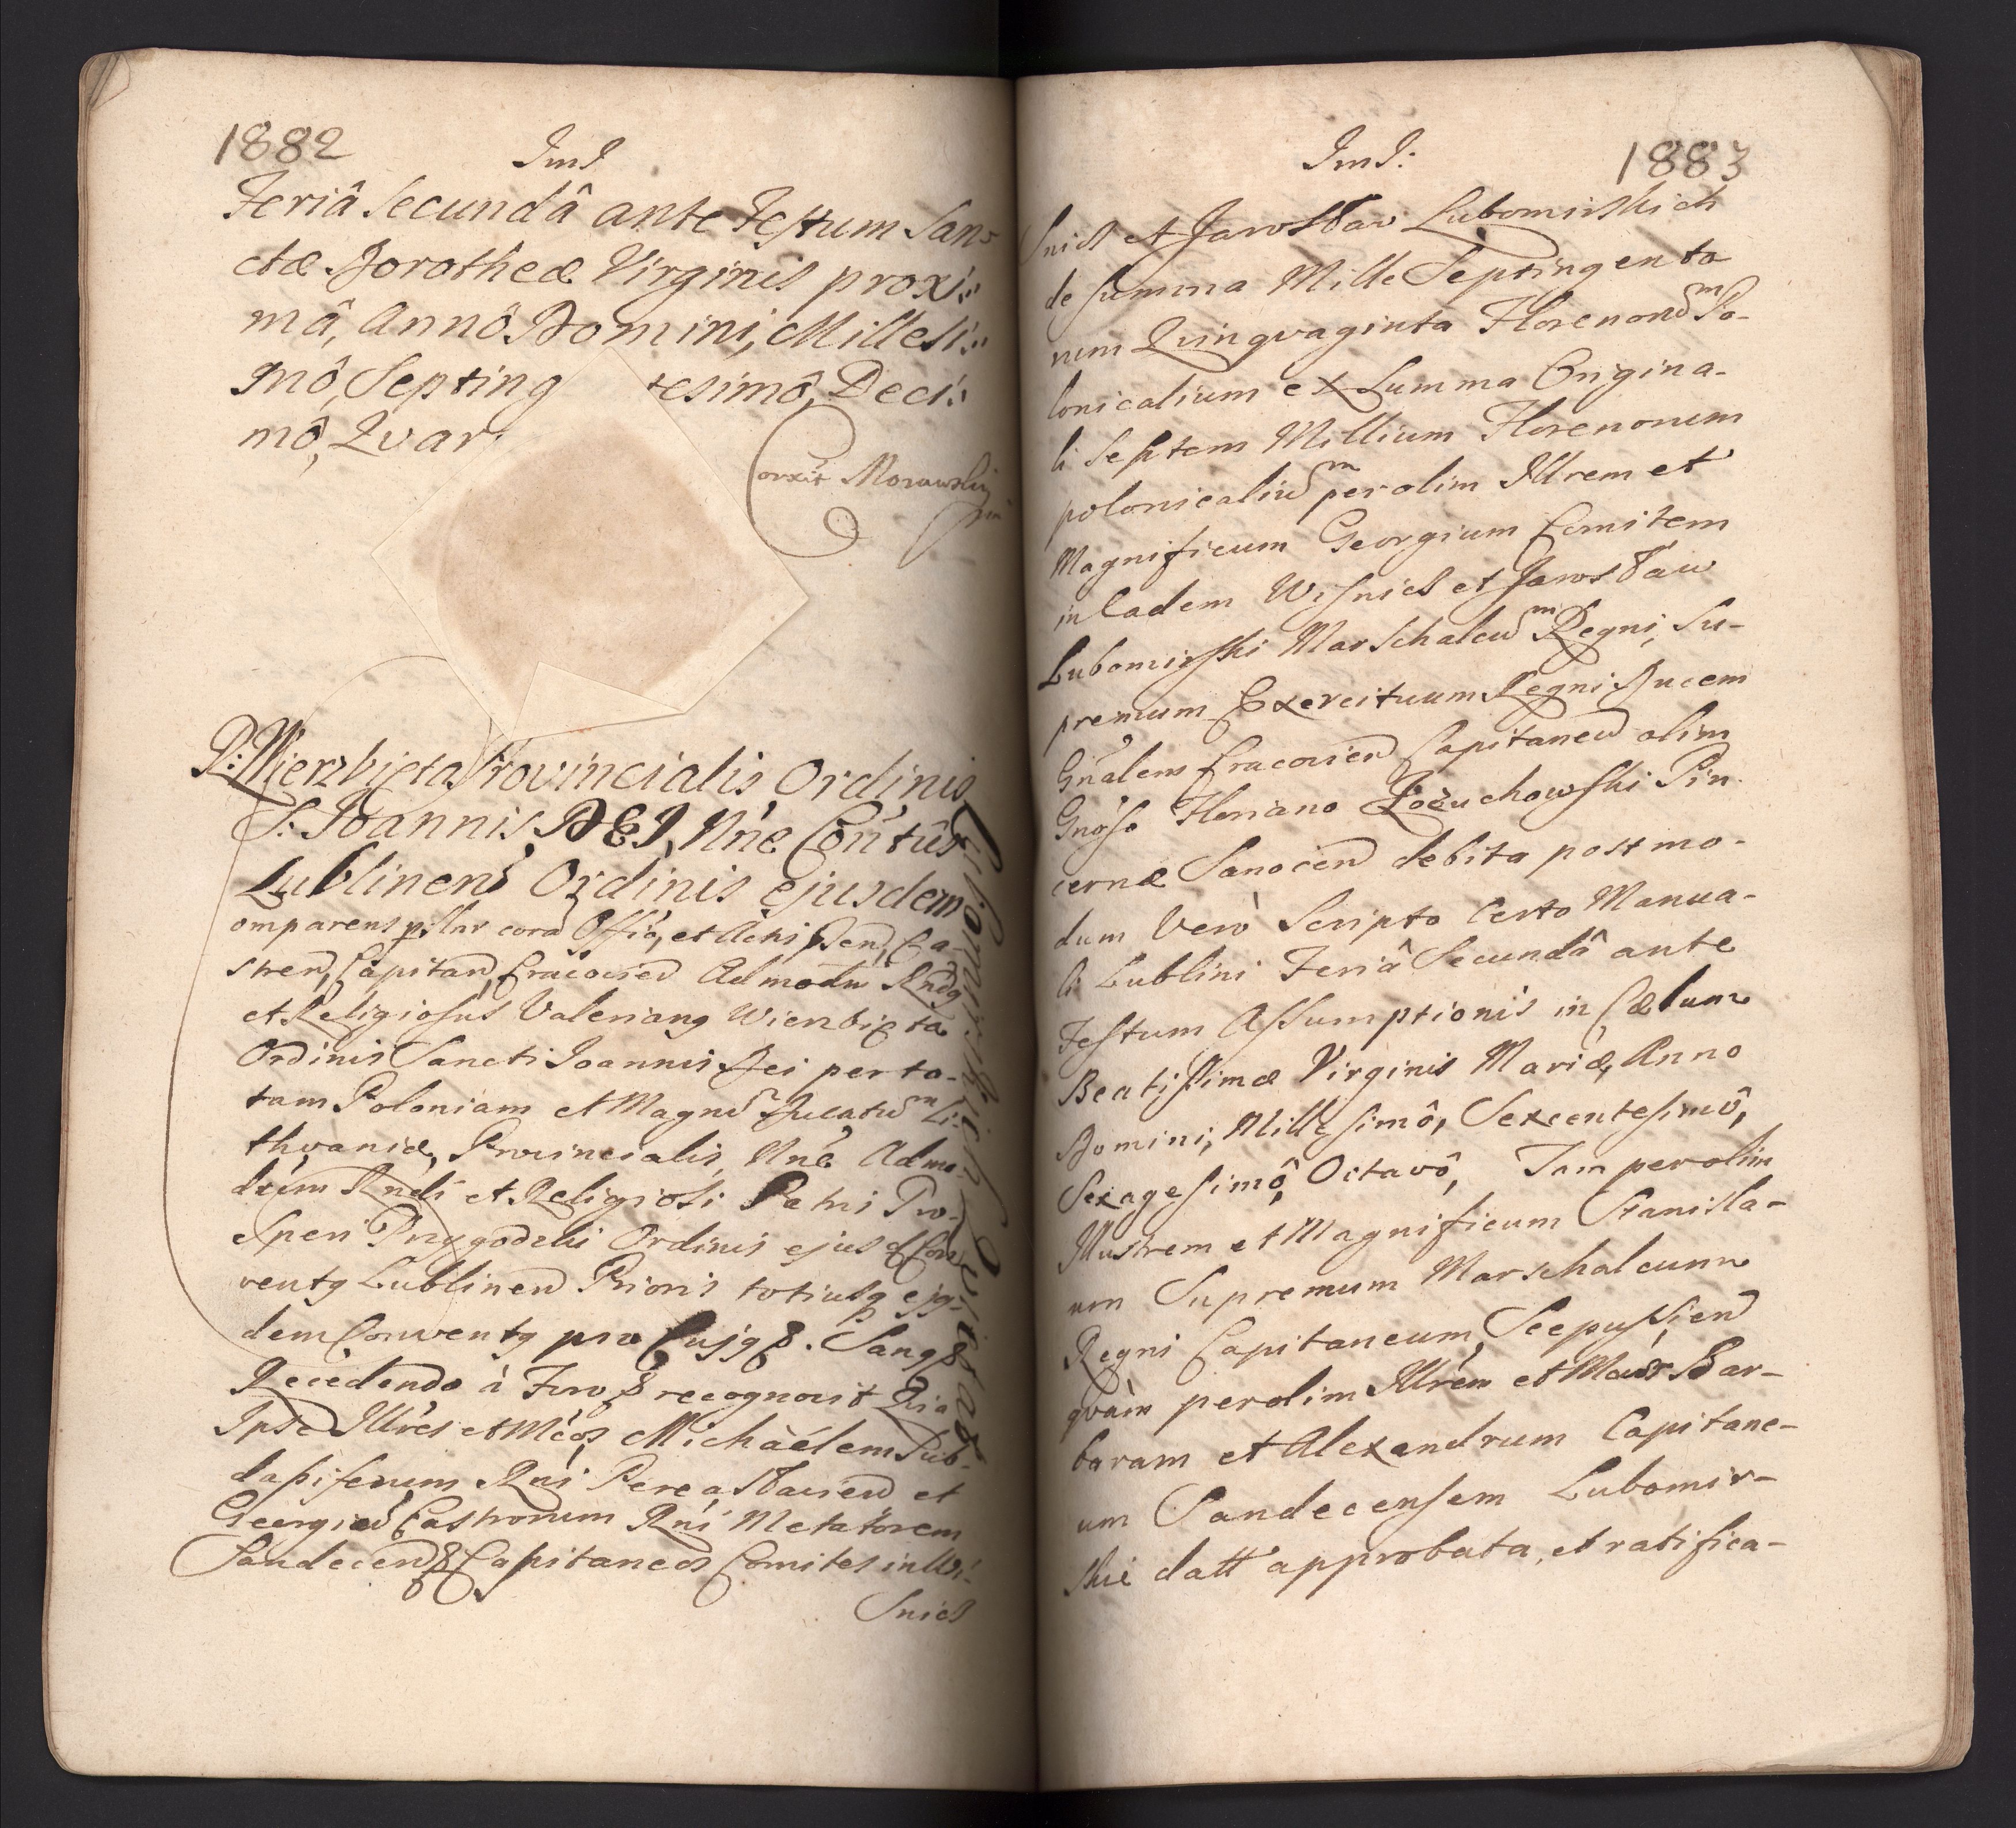 1882
Imd
Feriâ Secundâ ante Festum San=
ctæ Dorotheæ Virginis proxi:
mâ, Annô Domini, Millesi:
mô, Septing tesimô, Deci:
mô, Qvar
Corxit Morawski
P: Wierzbięta Provincialis Ordinis
S: Joannis DEI, Nñe Coñtûs
Lublinens Ordinis ejusdem
Lubomirskich Qvietat
omparens psltr corā Offio, et Actis psen, Ca-
stren, Capitan, Cracovien Admodū Rndg
et Religiosus Valeriang Wierzbięta
Ordinis Sancti Joannis Dei per to-
tam Poloniam et Magnū Ducatum Li-
thvaniæ, Provincialis, Nñe Admo-
dum Rndi et Religiosi Patri Pro-
speri Przygodzki Ordinis ejusd Con
ventg Lublinen Prioris totiusq ejg-
dem Conventg pro Cujg &. Sang &
Recedendo à Foro & recognovit Qvia
Ipse Illres et Mcos Michaelem Sub-
dapiferum Rni Pereasłavien et
Georgiū Castrorum Rni Metatorem
Sandecen & Capitaneos Comites in Wi-
snicz
Imd:
1883
snicz et Jarosław Lubomirskich
de summa Mille Septingento
rum Qvingvaginta Florenorum Po-
lonicalium ex Summa Origina-
li Septem Millium Florenorum
polonicalium per olim Illrem et
Magnificum Georgium Comitem
in eadem Wisnicz et Jarosław
Lubomirski Marschalcum Regni, Su-
premum Exercituum Regni Ducem
Gñalem Cracovien Capitaneū olim
Gnoso Floriano Łozuchowski Pin
cernæ Sanocien debita post mo-
dum verò Scripto Certo Manua-
li Lublini Feriâ Secundâ ante
Festum Assumptionis in Cælum
Beatissimæ Virginis Mariæ, Anno
Domini, Millesimô, Sexcentesimô,
Sexagesimô, Octavô, Tam per olim
Illustrem et Magnificum Stanisla-
um Supremum Marschalcum
Regni Capitaneum Scepusien
qvàm per olim Illrēm et Mcos Bar-
baram et Alexandrum Capitane-
um Sandecensem Lubomir-
skie datt approbata, et ratifica-